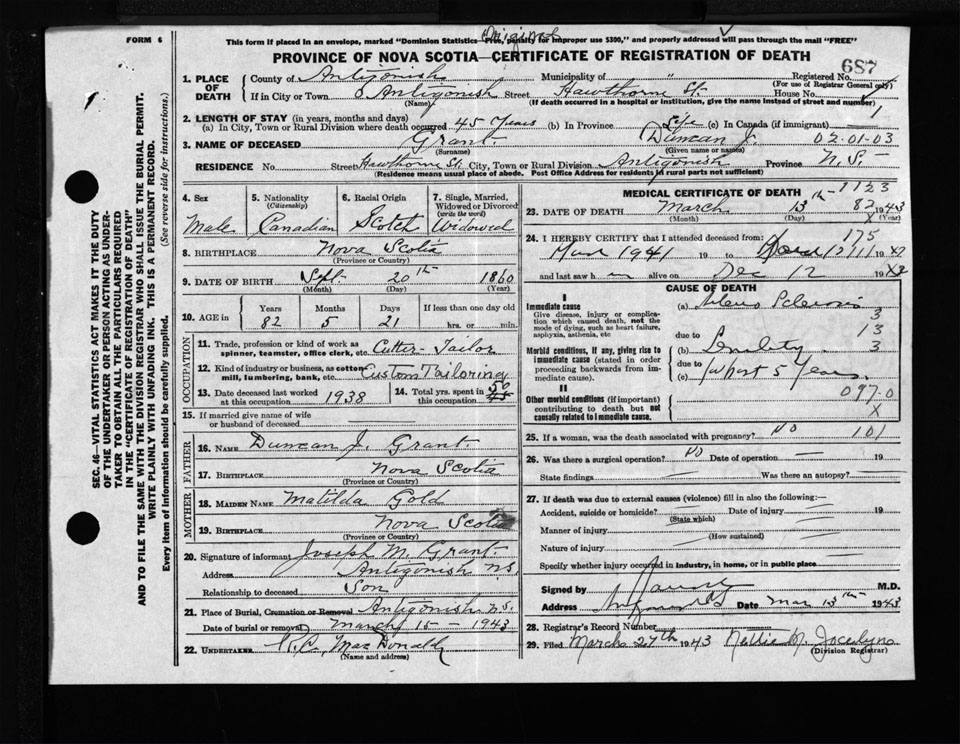 FORM 6
This form if placed in an envelope, marked "Dominion Statistics—Free, penalty for improper use $300," and properly addressed will pass through the mail "FREE"
Original
PROVINCE OF NOVA SCOTIA—CERTIFICATE OF REGISTRATION OF DEATH
687
1. PLACE OF DEATH County of Antigonish Municipality of " Registered No.
(For use of Registrar General only)
If in City or Town Antigonish Street Hawthorne St. House No.
(Name) (If death occurred in a hospital or institution, give the name instead of street and number)
2. LENGTH OF STAY (in years, months and days)
1
(a) In City, Town or Rural Division where death occurred 45 Years (b) In Province Life (c) In Canada (if immigrant) —
3. NAME OF DECEASED Grant Duncan J. 02-01-03
(Surname) (Given name or names)
RESIDENCE No. Street Hawthorne St. City, Town or Rural Division Antigonish Province N.S.
(Residence means usual place of abode. Post Office Address for residents in rural parts not sufficient)
4. Sex Male
5. Nationality (Citizenship) Canadian
6. Racial Origin Scotch
7. Single, Married, Widowed or Divorced (write the word) Widowed
8. BIRTHPLACE Nova Scotia
(Province or Country)
9. DATE OF BIRTH Sept. 20th 1860
(Month) (Day) (Year)
10. AGE in Years 82 Months 5 Days 21 If less than one day old hrs. or min.
OCCUPATION
11. Trade, profession or kind of work as spinner, teamster, office clerk, etc. Cutter-Tailor
12. Kind of industry or business, as cotton mill, lumbering, bank, etc. Custom Tailoring
13. Date deceased last worked at this occupation 1938
14. Total yrs. spent in this occupation 50
15. If married give name of wife or husband of deceased
FATHER
16. NAME Duncan J. Grant
17. BIRTHPLACE Nova Scotia
(Province or Country)
MOTHER
18. MAIDEN NAME Matilda Gold
19. BIRTHPLACE Nova Scotia
(Province or Country)
20. Signature of informant Joseph M. Grant
Address Antigonish N.S.
Relationship to deceased Son
21. Place of Burial, Cremation or Removal Antigonish N.S.
Date of burial or removal March 15 - 1943
22. UNDERTAKER MacDonald
(Name and address)
MEDICAL CERTIFICATE OF DEATH
1123
23. DATE OF DEATH March 13th 1943
82
(Month) (Day) (Year)
175
24. I HEREBY CERTIFY that I attended deceased from:
1941 19 to 19
and last saw h alive on Dec 12 19
CAUSE OF DEATH
I
Immediate cause
Give disease, injury or complication which caused death, not the mode of dying, such as heart failure, asphyxia, asthenia, etc
(a) Arterio Sclerosis
3
13
due to
Morbid conditions, if any, giving rise to immediate cause (stated in order proceeding backwards from immediate cause).
(b) Senility 3
due to
(c) 5 Years
II
097.0
Other morbid conditions (if important) contributing to death but not causally related to immediate cause.
X
25. If a woman, was the death associated with pregnancy? NO 101
26. Was there a surgical operation? NO Date of operation — 19
State findings Was there an autopsy?
27. If death was due to external causes (violence) fill in also the following:—
Accident, suicide or homicide? Date of injury 19
(State which)
Manner of injury
(How sustained)
Nature of injury
Specify whether injury occurred in Industry, in home, or in public place
Signed by M.D.
Address Date Mar 13th 1943
28. Registrar's Record Number
29. Filed March 27th 1943 Nettie M. Jocelyne
(Division Registrar)
SEC. 46—VITAL STATISTICS ACT MAKES IT THE DUTY
OF THE UNDERTAKER OR PERSON ACTING AS UNDERTAKER TO OBTAIN ALL THE PARTICULARS REQUIRED
IN THE "CERTIFICATE OF REGISTRATION OF DEATH"
AND TO FILE THE SAME WITH THE DIVISION REGISTRAR WHO SHALL ISSUE THE BURIAL PERMIT.
WRITE PLAINLY WITH UNFADING INK. THIS IS A PERMANENT RECORD.
Every item of information should be carefully supplied. (See reverse side for instructions.)